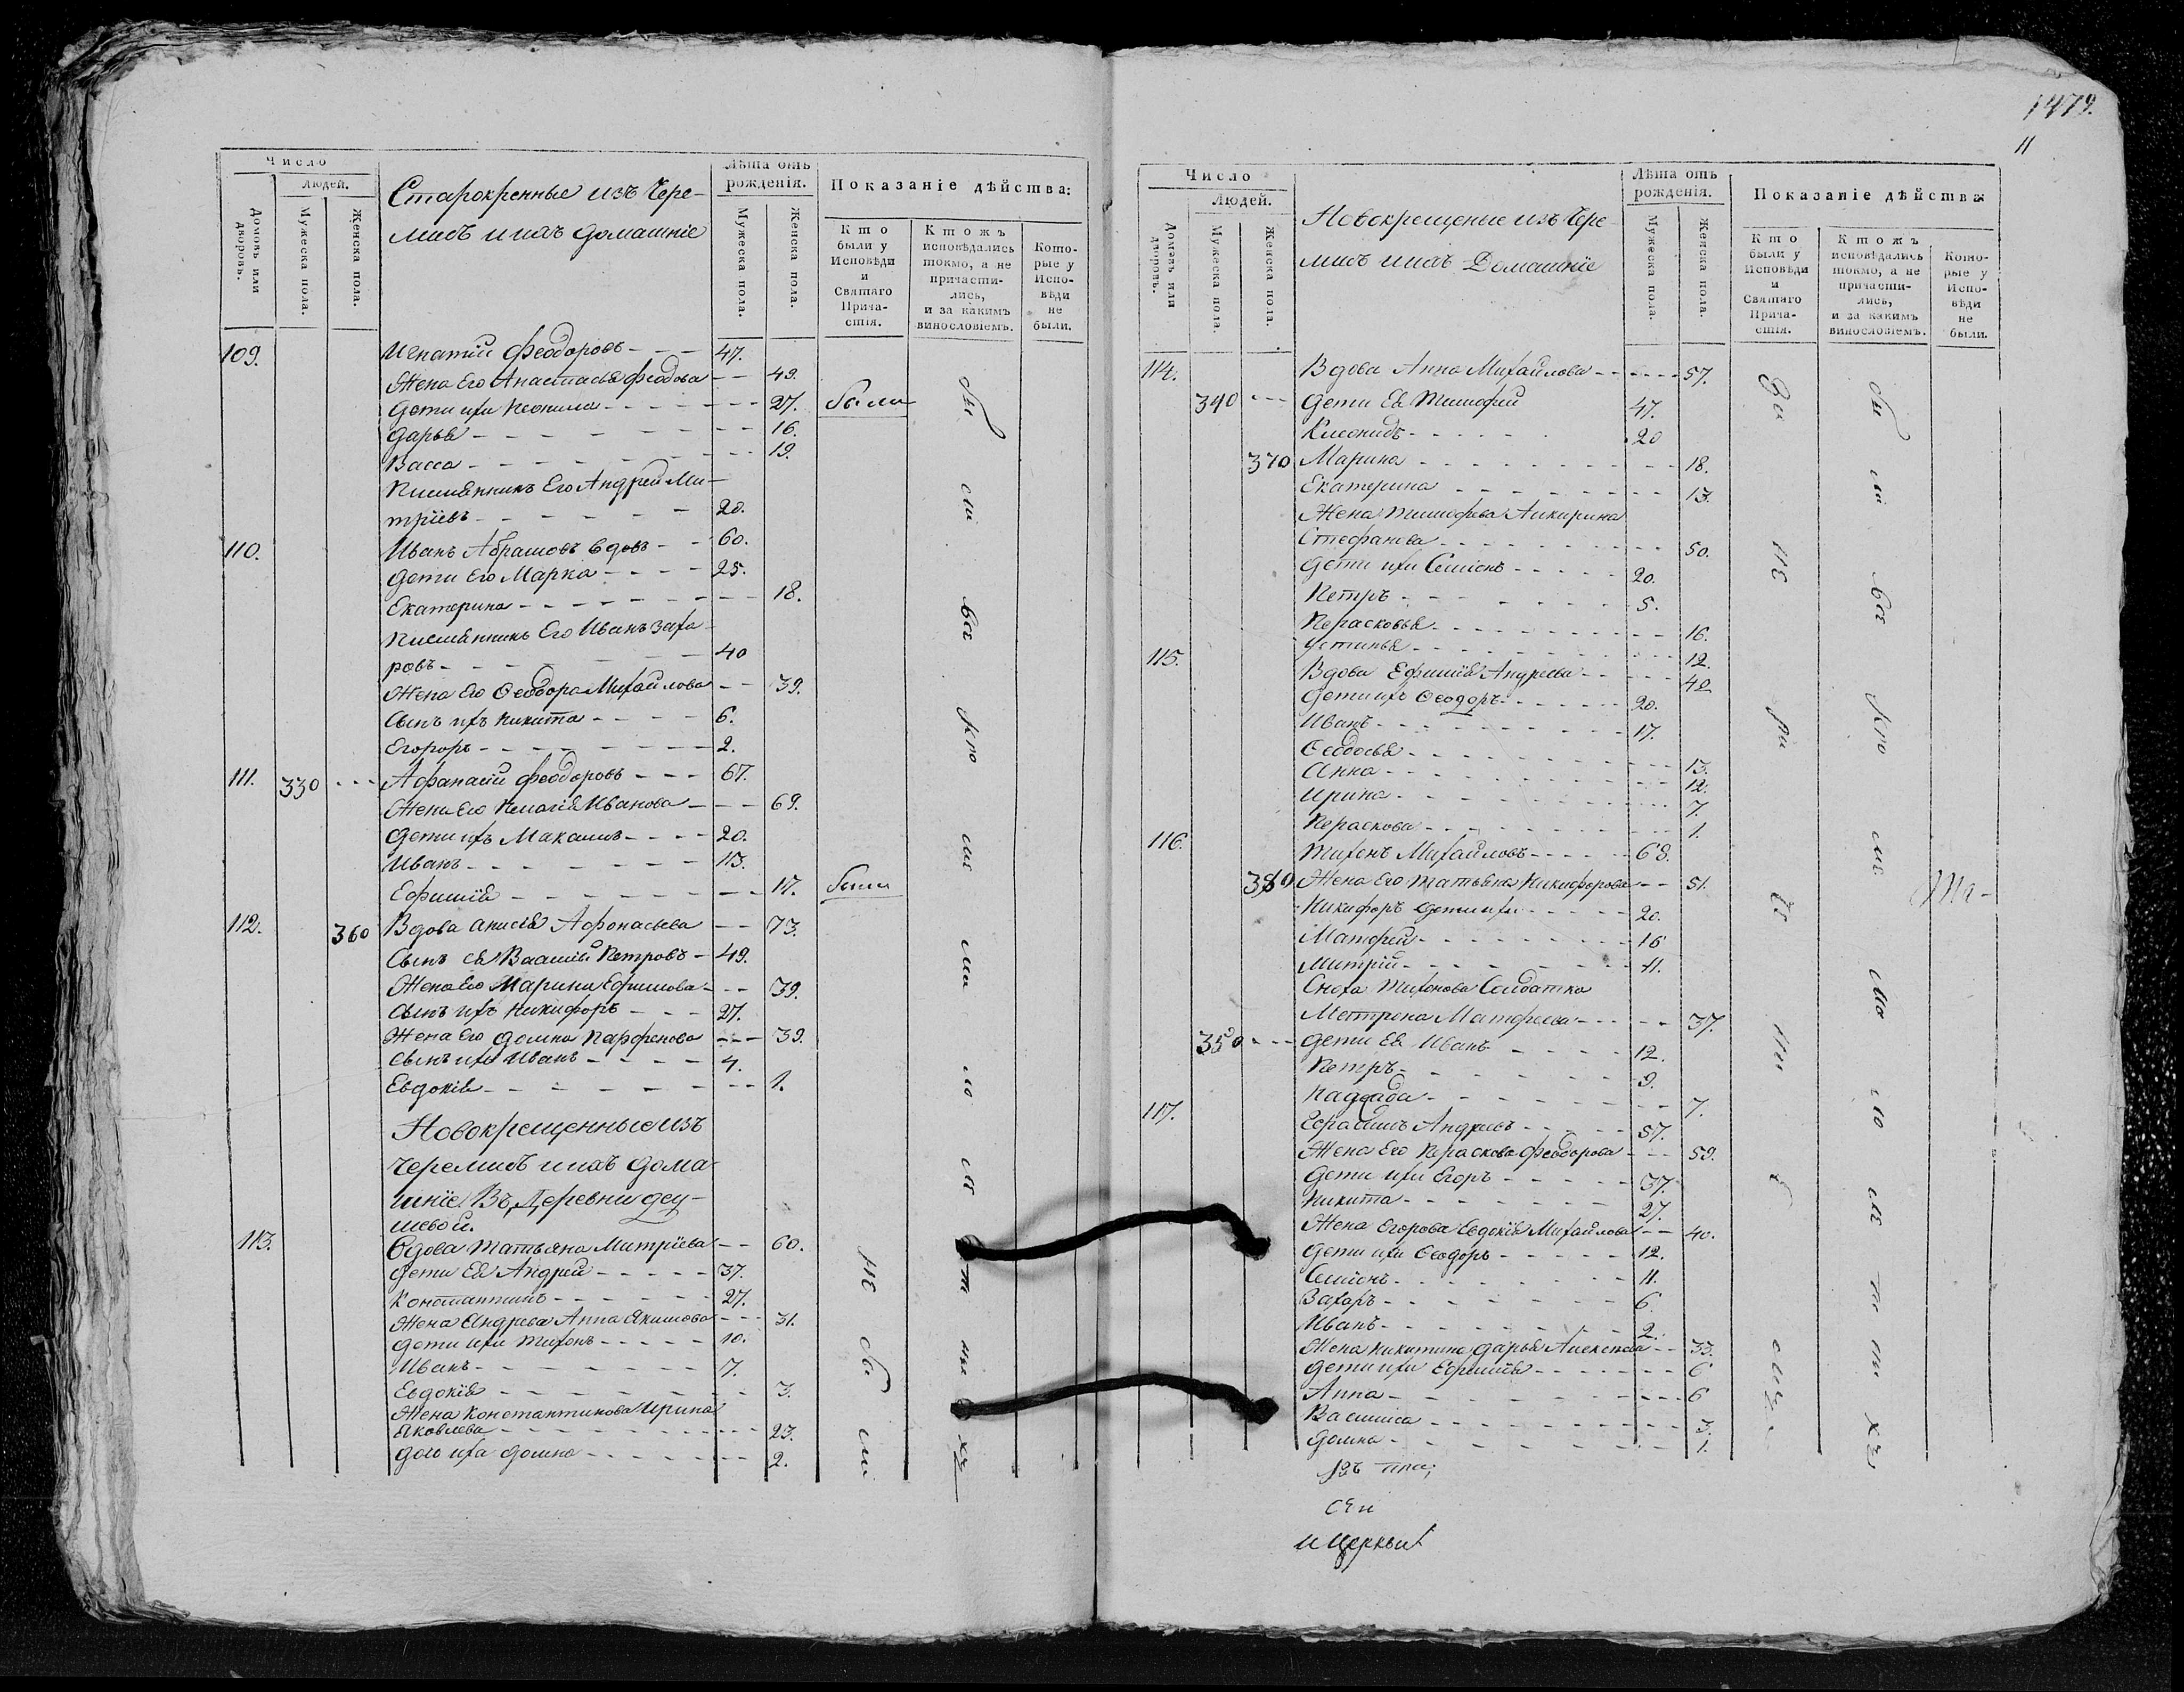 Число
Людей.
Домовъ или дворовъ.
Мужеска пола.
Женска пола.
Старокрещенные изъ Чере-
мисъ и ихъ домашніе
Лѣта отъ рожденія.
Мужеска пола.
Женска пола.
Показаніе дѣйства:
Кто были у Исповѣди и Святаго Прича-стія.
Ктожъ исповѣдались токмо, а не причасти-лись, и за какимъ винословіемъ.
Кото-рые у Испо-вѣди не были.
109. Игнатій Феодоровъ - - - 47.
Жена Его Анастасія Феодова - - 49.
дети ихъ Неонила - - - - 27. были
дарья - - - - 16.
Васса - - - - 19.
племянникъ Его Андрей Ми-
тріевъ - - - - 20.
110. Иванъ Абрамовъ вдовъ - - 60.
дети Его Марко - - - - 25.
Екатерина - - - - 18.
племянникъ Его Иванъ Заха-
ровъ - - - - 40
Жена Его Феодора Михайлова - - 39.
Сынъ ихъ Никита - - - - 6.
Егоръ - - - - 2.
111. 330 - - - Афанасій Феодоровъ - - - 67.
Жена Его Пелагія Иванова - - - 69.
дети ихъ Максимъ - - - - 20.
Иванъ - - - - 13.
Ефимія - - - - 17. были
112. 360 Вдова Анисія Афонасьева - - 73.
Сынъ ея Василій Петровъ - 49.
Жена Его Марина Ефимова - - - 39.
Сынъ ихъ Никифоръ - - - 27.
Жена Его домна Парфенова - - - 39.
Сынъ ихъ Иванъ - - - - 4.
Евдокія - - - - 1.
Новокрещенные изъ
Черемисъ и ихъ дома
шніе Въ Деревни
113. Вдова Татьяна Митріева - - 60.
дети Ея Андрей - - - - 37.
Константинъ - - - - 27.
Жена Андреева Анна Якимова - - - 31.
дети ихъ Тихонъ - - - - 10.
Иванъ - - - - 7.
Евдокія - - - - 3.
Жена Константинова Ирина
Яковлева - - - - 23.
дочь ихъ домна - - - - 2.
не были
1479.
11
Число
Людей.
Домовъ или дворовъ.
Мужеска пола.
Женска пола.
Новокрещеные изъ Чере
мисъ и ихъ Домашніе
Лѣта отъ рожденія.
Мужеска пола.
Женска пола.
Показаніе дѣйства:
Кто были у Исповѣди и Святаго Прича-стія.
Ктожъ исповѣдались токмо, а не причасти-лись, и за какимъ винословіемъ.
Кото-рые у Испо-вѣди не были.
114. Вдова Анна Михайлова - - - - 57.
340 - - - дети Ея Тимофей 47.
Леонидъ - - - - 20
370 Марина - - - - 18.
Екатерина - - - - 13.
Жена Тимофеева Акирина
Стефанова - - - - 50.
дети ихъ Семіонъ - - - - 20.
Петръ - - - - 5.
Перасковья - - - - 16.
Устинья - - - - 12.
115. Вдова Ефимія Андреева - - - - 42
дети ихъ Феодоръ - - - - 20.
Иванъ - - - - 17.
Феодосья - - - - 13.
Анна - - - - 12.
Ирина - - - - 7.
Пераскова - - - - 1.
116. Тихонъ Михайловъ - - - - 68.
380 Жена Его Татьяна Никифорова - - 51.
Никифоръ дети ихъ - - - - 20.
Матфей - - - - 16
Митрій - - - - 11.
Сноха Тихонова Солдатка
Метрона Матфеева - - - - 37.
350 - - - дети Ея Иванъ - - - - 12.
Петръ - - - - 9.
Надежда - - - - 7.
117. Герасимъ Андреевъ - - - - 57.
Жена Его Пераскова Феодорова - - - 59.
дети ихъ Егоръ - - - - 37.
Никита - - - - 27.
Жена Егорова Евдокія Михайлова - - 40.
дети ихъ Феодоръ - - - - 12.
Семіонъ - - - - 11.
Захаръ - - - - 6.
Иванъ - - - - 2.
Жена Никитина дарья Алексеева - - 33.
дети ихъ Ефимія - - - - 6
Анна - - - - 6
Василиса - - - - 3.
домна - - - - 1.
и церкви